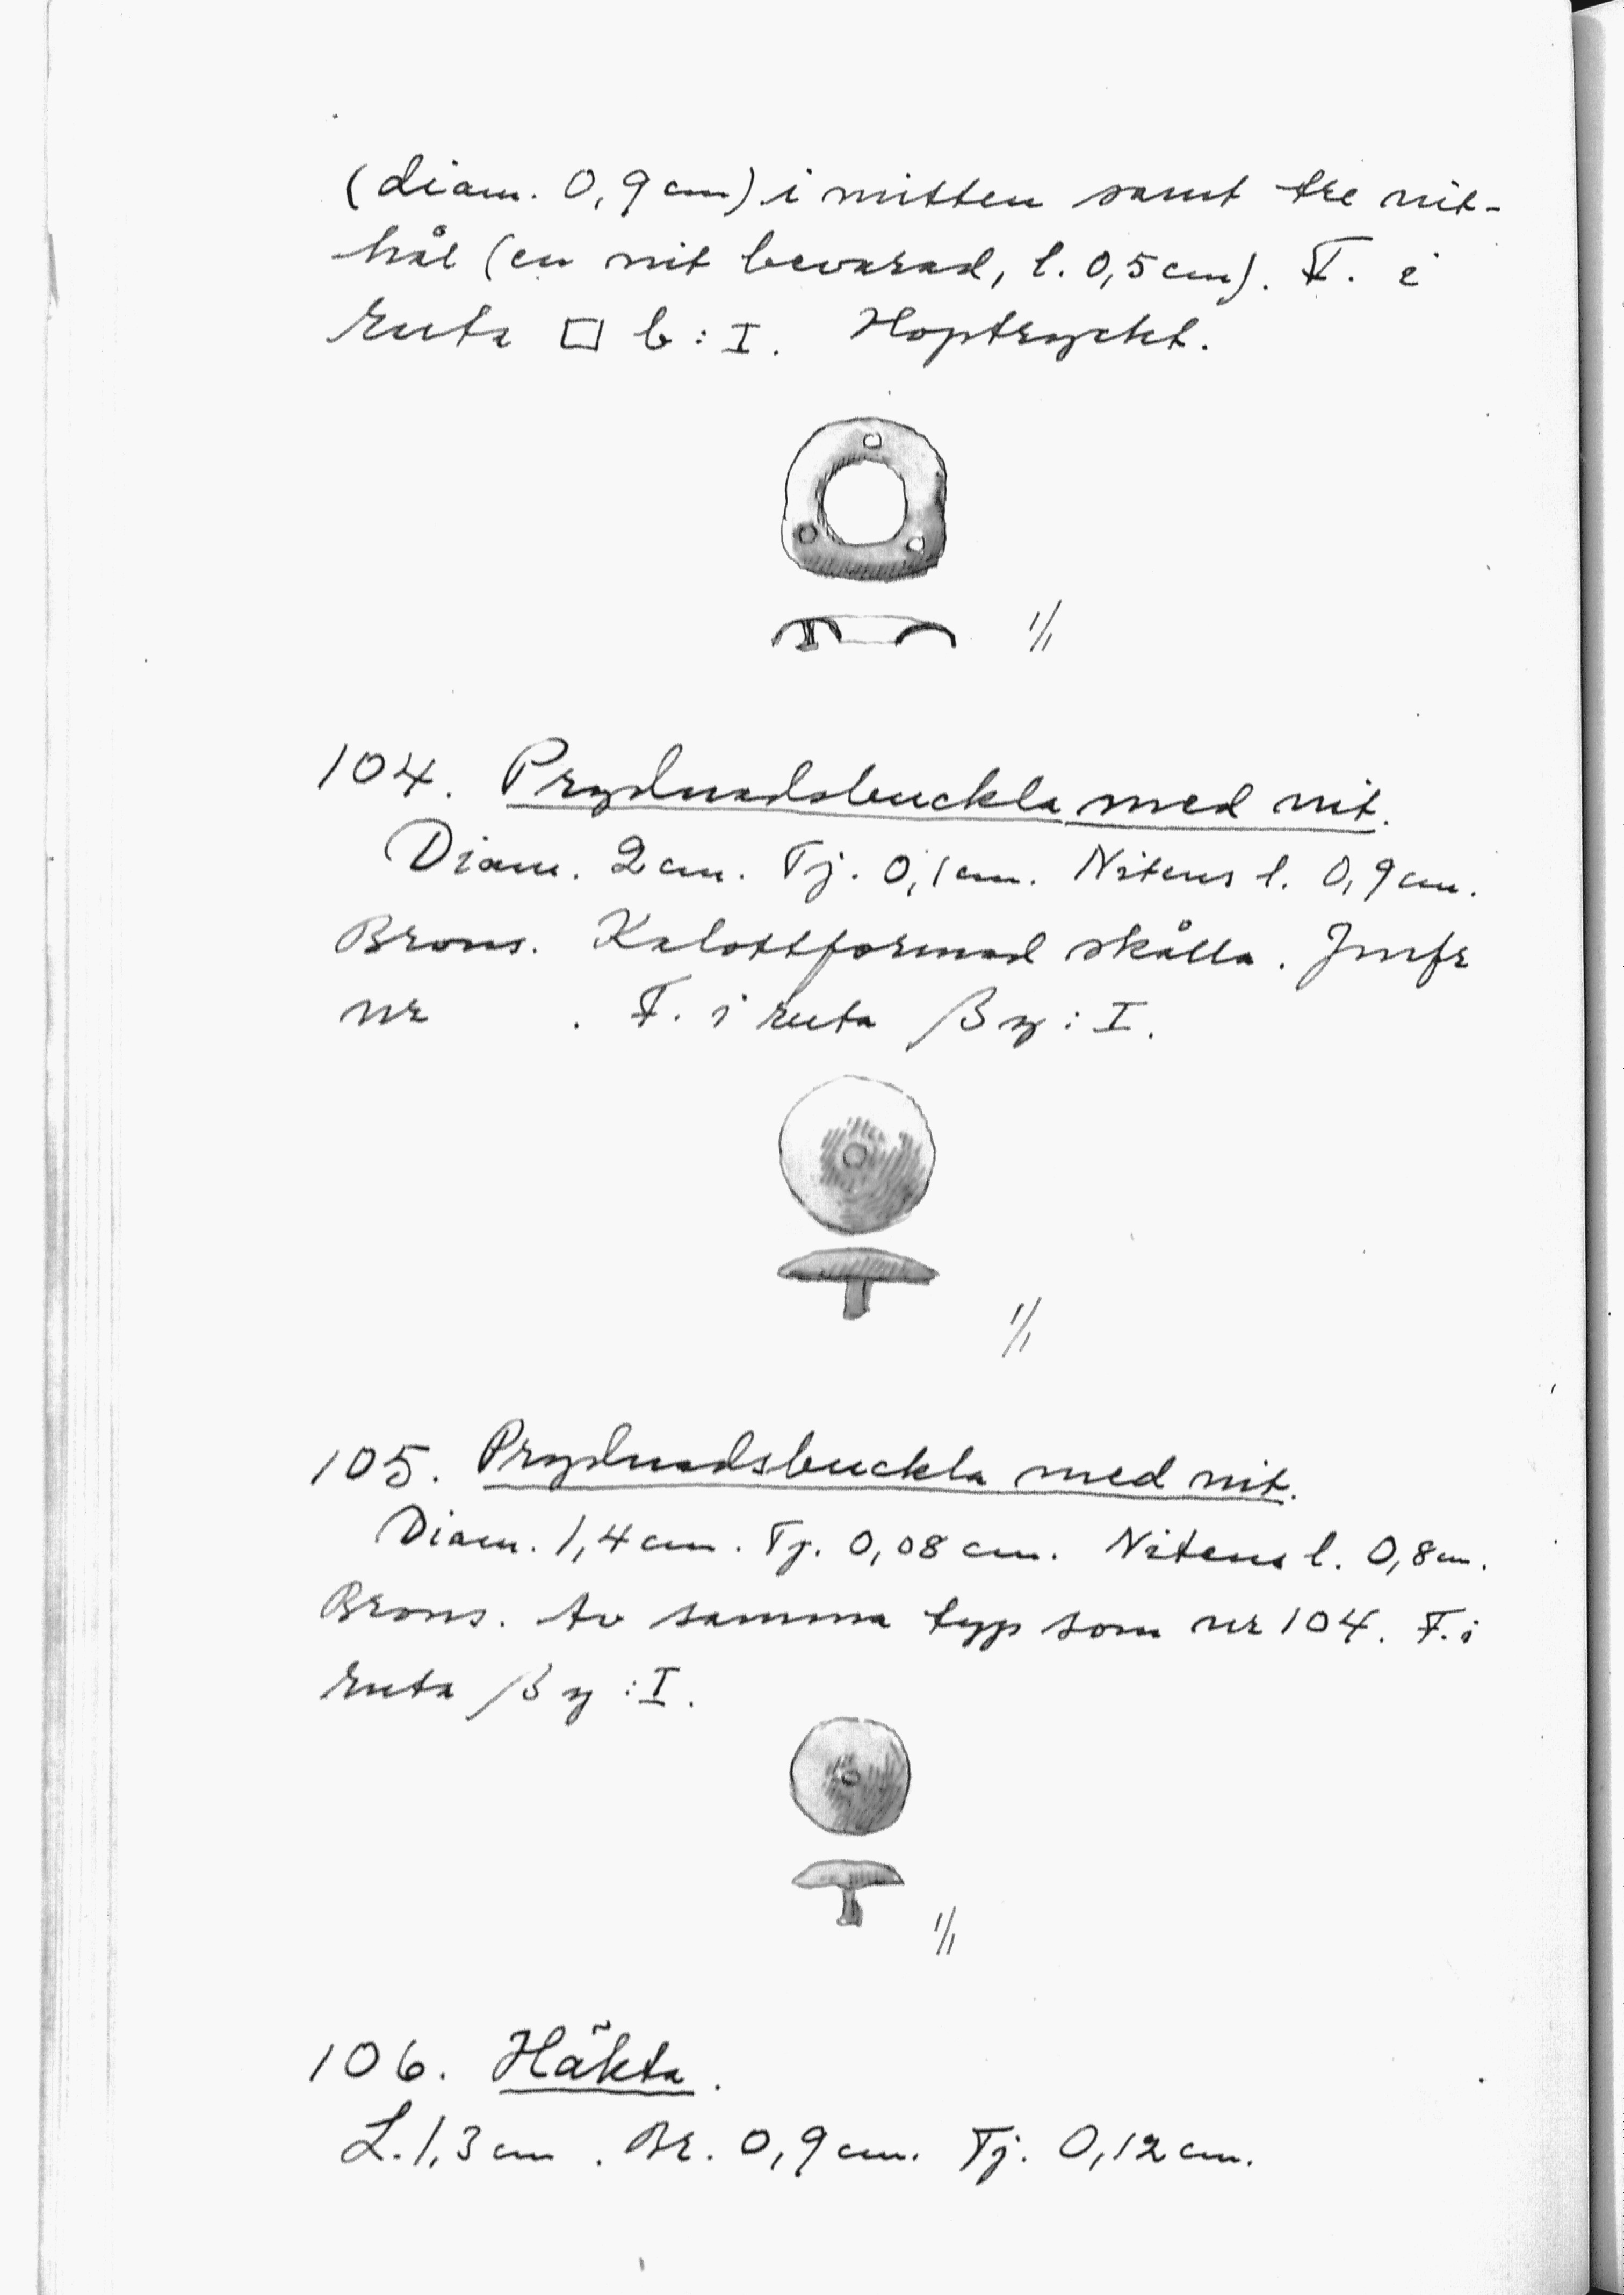 (diam. 0,9 cm) i mitten samt tre nit-
hål (en nit bevarad, l. 0,5 cm). F. i
ruta □ b : I. Hoptryckt.
1/1
104. Prydnadsbuckla med nit.
Diam. 2 cm. Tj. 0,1 cm. Nitens l. 0,9 cm.
Brons. Kalottformad skålla. Jmfr
nr . F. i ruta β y : I.
1/1
105. Prydnadsbuckla med nit.
Diam. 1,4 cm. Tj. 0,08 cm. Nitens l. 0,8 cm.
Brons. Av samma typ som nr 104. F. i
ruta β y : I.
1/1
106. Häkta.
L. 1,3 cm. Br. 0,9 cm. Tj. 0,12 cm.